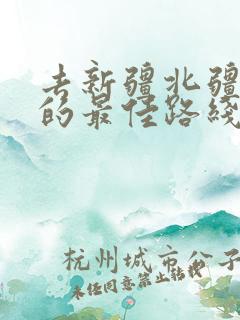 去新疆北疆
的最佳路线
杭州城市公子
未经同意禁止转载